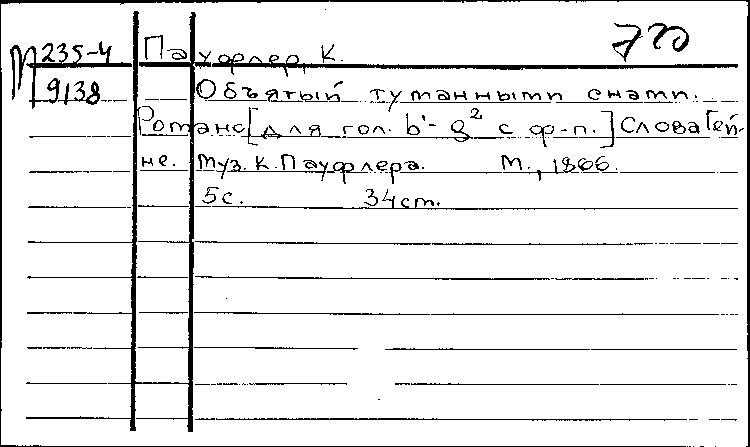 М 235-4 Пауфлер, К. 720
9138 Объятый туманными снами.
Романс [для гол. b¹- g² с ф-п.] Слова Гей-
не. Муз. К. Пауфлера. М., 1866.
5с. 34cm.